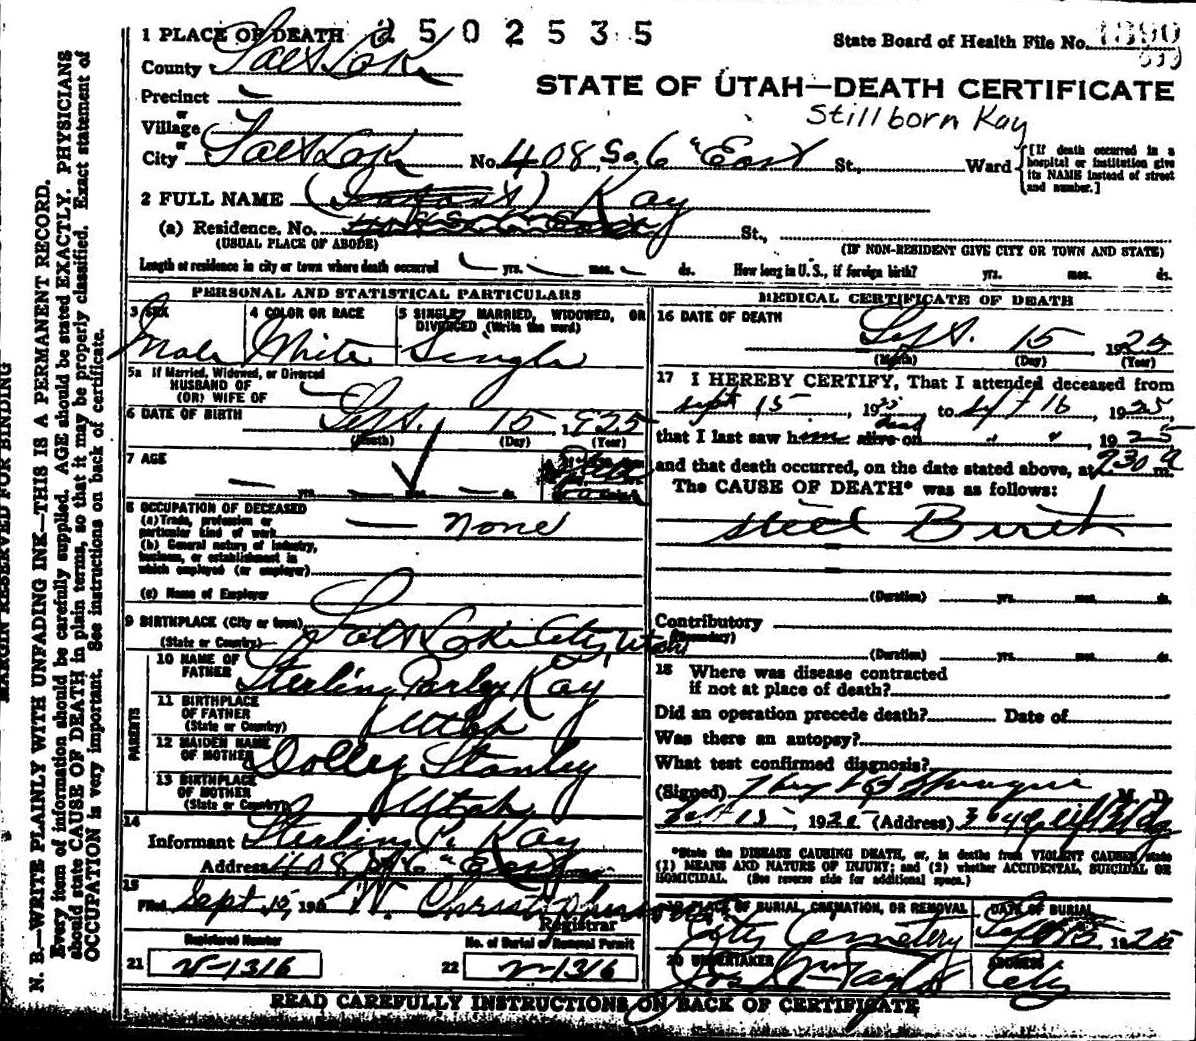 1 PLACE OF DEATH 2502535
State Board of Health File No. 1890
County Salt Lake
STATE OF UTAH—DEATH CERTIFICATE
Precinct
Stillborn Kay
or
Village
or
City Salt Lake No. 408 So. 6" East St., Ward
[If death occurred in a hospital or institution give its NAME instead of street and number.]
2 FULL NAME (Infant) Kay
(a) Residence. No. St.,
(USUAL PLACE OF ABODE) (IF NON-RESIDENT GIVE CITY OR TOWN AND STATE)
Length of residence in city or town where death occurred yrs. mos. ds. How long in U. S., if foreign birth? yrs. mos. ds.
PERSONAL AND STATISTICAL PARTICULARS
3 SEX 4 COLOR OR RACE 5 SINGLE, MARRIED, WIDOWED, OR
DIVORCED (Write the word)
Male White Single
5a If Married, Widowed, or Divorced
HUSBAND OF
(OR) WIFE OF
6 DATE OF BIRTH Sept. 15, 1925
(Month) (Day) (Year)
7 AGE
yrs. mos. ds.
8 OCCUPATION OF DECEASED
(a) Trade, profession or
particular kind of work None
(b) General nature of industry,
business, or establishment in
which employed (or employer)
(c) Name of Employer
9 BIRTHPLACE (City or town)
(State or Country) Salt Lake City, Utah
PARENTS
10 NAME OF
FATHER Sterling Parley Kay
11 BIRTHPLACE
OF FATHER
(State or Country) Utah
12 MAIDEN NAME
OF MOTHER Dolley Stanley
13 BIRTHPLACE
OF MOTHER
(State or Country) Utah
14
Informant Sterling P. Kay
Address 408 So. 6" East
15
Filed Sept 15, 192
Registrar
Registered Number No. of Burial or Removal Permit
21 N-1316 22 N-1316
MEDICAL CERTIFICATE OF DEATH
16 DATE OF DEATH
Sept. 15 1925
(Month) (Day) (Year)
17 I HEREBY CERTIFY, That I attended deceased from
Sept 15, 1925 to Sept 16, 1925
that I last saw him alive on dead " ", 1925
and that death occurred, on the date stated above, at 230 a m.
The CAUSE OF DEATH* was as follows:
Still Birth
(Duration) yrs. mos. ds.
Contributory
(Secondary)
(Duration) yrs. mos. ds.
18 Where was disease contracted
if not at place of death?
Did an operation precede death? Date of
Was there an autopsy?
What test confirmed diagnosis?
(Signed) Sprague M. D.
15, 1925 (Address)
*State the DISEASE CAUSING DEATH, or, in deaths from VIOLENT CAUSES, state
(1) MEANS AND NATURE OF INJURY; and (2) whether ACCIDENTAL, SUICIDAL OR
HOMICIDAL. (See reverse side for additional space.)
19 PLACE OF BURIAL, CREMATION, OR REMOVAL DATE OF BURIAL
City Cemetery Sept 15 1925
20 UNDERTAKER ADDRESS
Jos Wm Taylor City
READ CAREFULLY INSTRUCTIONS ON BACK OF CERTIFICATE
MARGIN RESERVED FOR BINDING
N. B.—WRITE PLAINLY WITH UNFADING INK—THIS IS A PERMANENT RECORD.
Every item of information should be carefully supplied. AGE should be stated EXACTLY. PHYSICIANS
should state CAUSE OF DEATH in plain terms, so that it may be properly classified. Exact statement of
OCCUPATION is very important. See instructions on back of certificate.